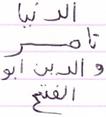 الدنيا
ناصر
والدين ابو
الفتح